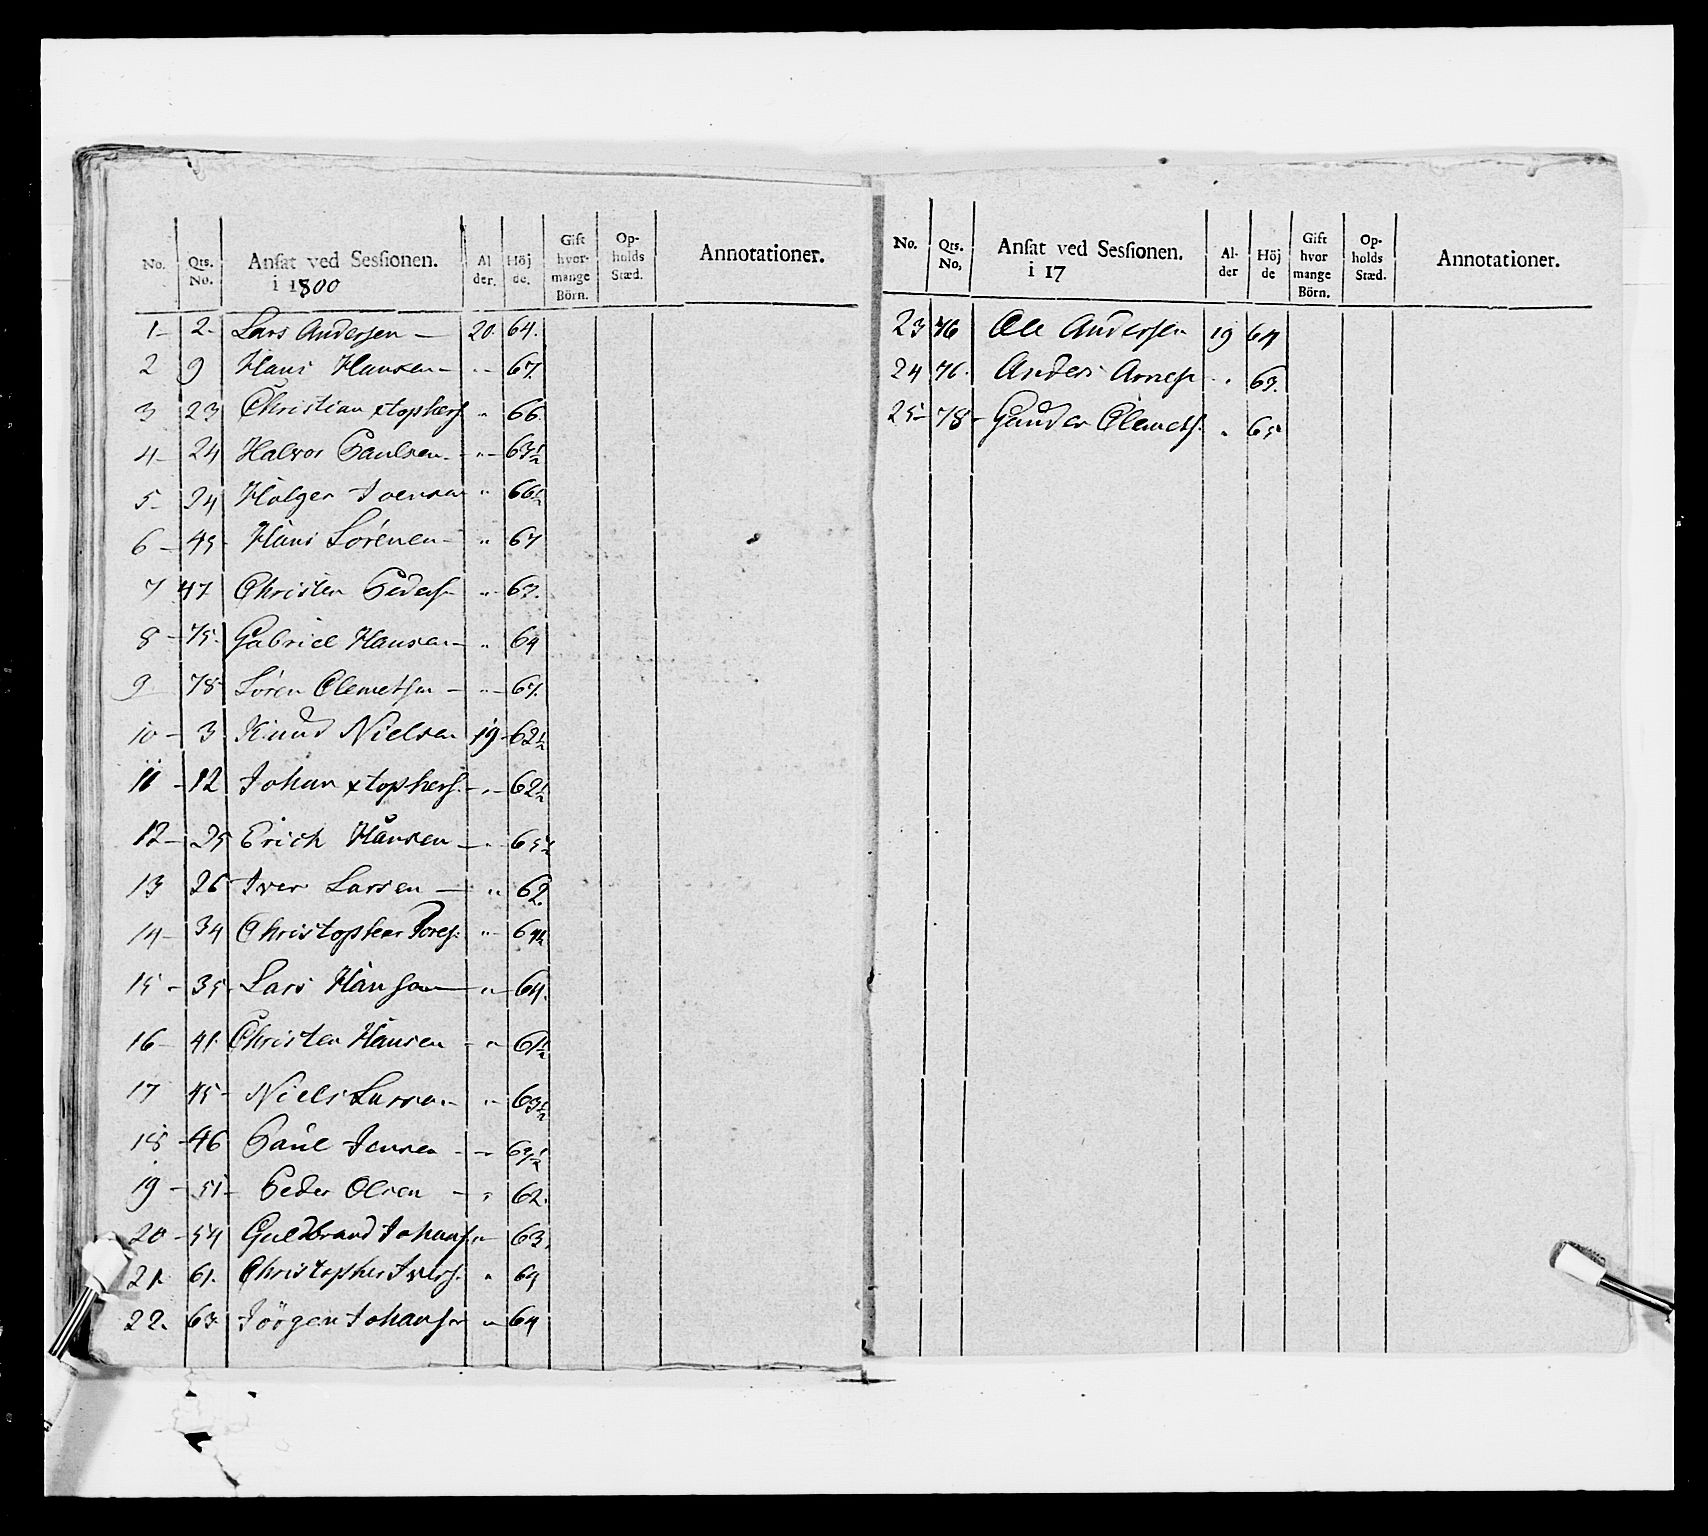 No. Qts. No. Ansat ved Sessionen. i 1800 Alder. Höjde. Gift hvor-mange Börn. Op-holds Stæd. Annotationer.
1 - 2 - Lars Andersen - 20 64.
2 9 Hans Hansen - " - 67.
3 23 Christian xtophers. " 66.
4 - 24 Halvor Paulsen - " - 63½
5 - 24 Holger Ivensen " 66½
6 - 45 - Hans Sörensen - " 67
7 47 Christen Peders. - " 67.
8 - 75. Gabriel Hansen - " 64
9 - 78 - Sören Clemetsen - " - 67.
10 - 3. Knud Nielsen 19 - 62½
11 - 12 Johan xtophers. - " - 62½
12 - 25 Erich Hansen - " - 65½
13 26 - Iver Larsen - " 62.
14 - 34 Christopher Tores. " - 64½
15 - 35. Lars Hansen - " - 64.
16 - 41. Christen Hansen - " 61½
17 45 - Niels Larsen - " 63½
18 - 46 Paul Jensen - -
19 - 51 - Peder Olsen - " 62.
20 - 54 Guldbrand Johans. " - 63.
21. 61. Christopher Ivers. " 64
22. 63. Jörgen Johansen " 64
No. Qts. No, Ansat ved Sessionen. i 17 Alder Höjde Gift hvor mange Börn. Op-holds Stæd. Annotationer.
23 76 Ole Andersen 19 64
24 76. Anders Arnes. " 63.
25 - 78 - Gunder Clemets. " 65